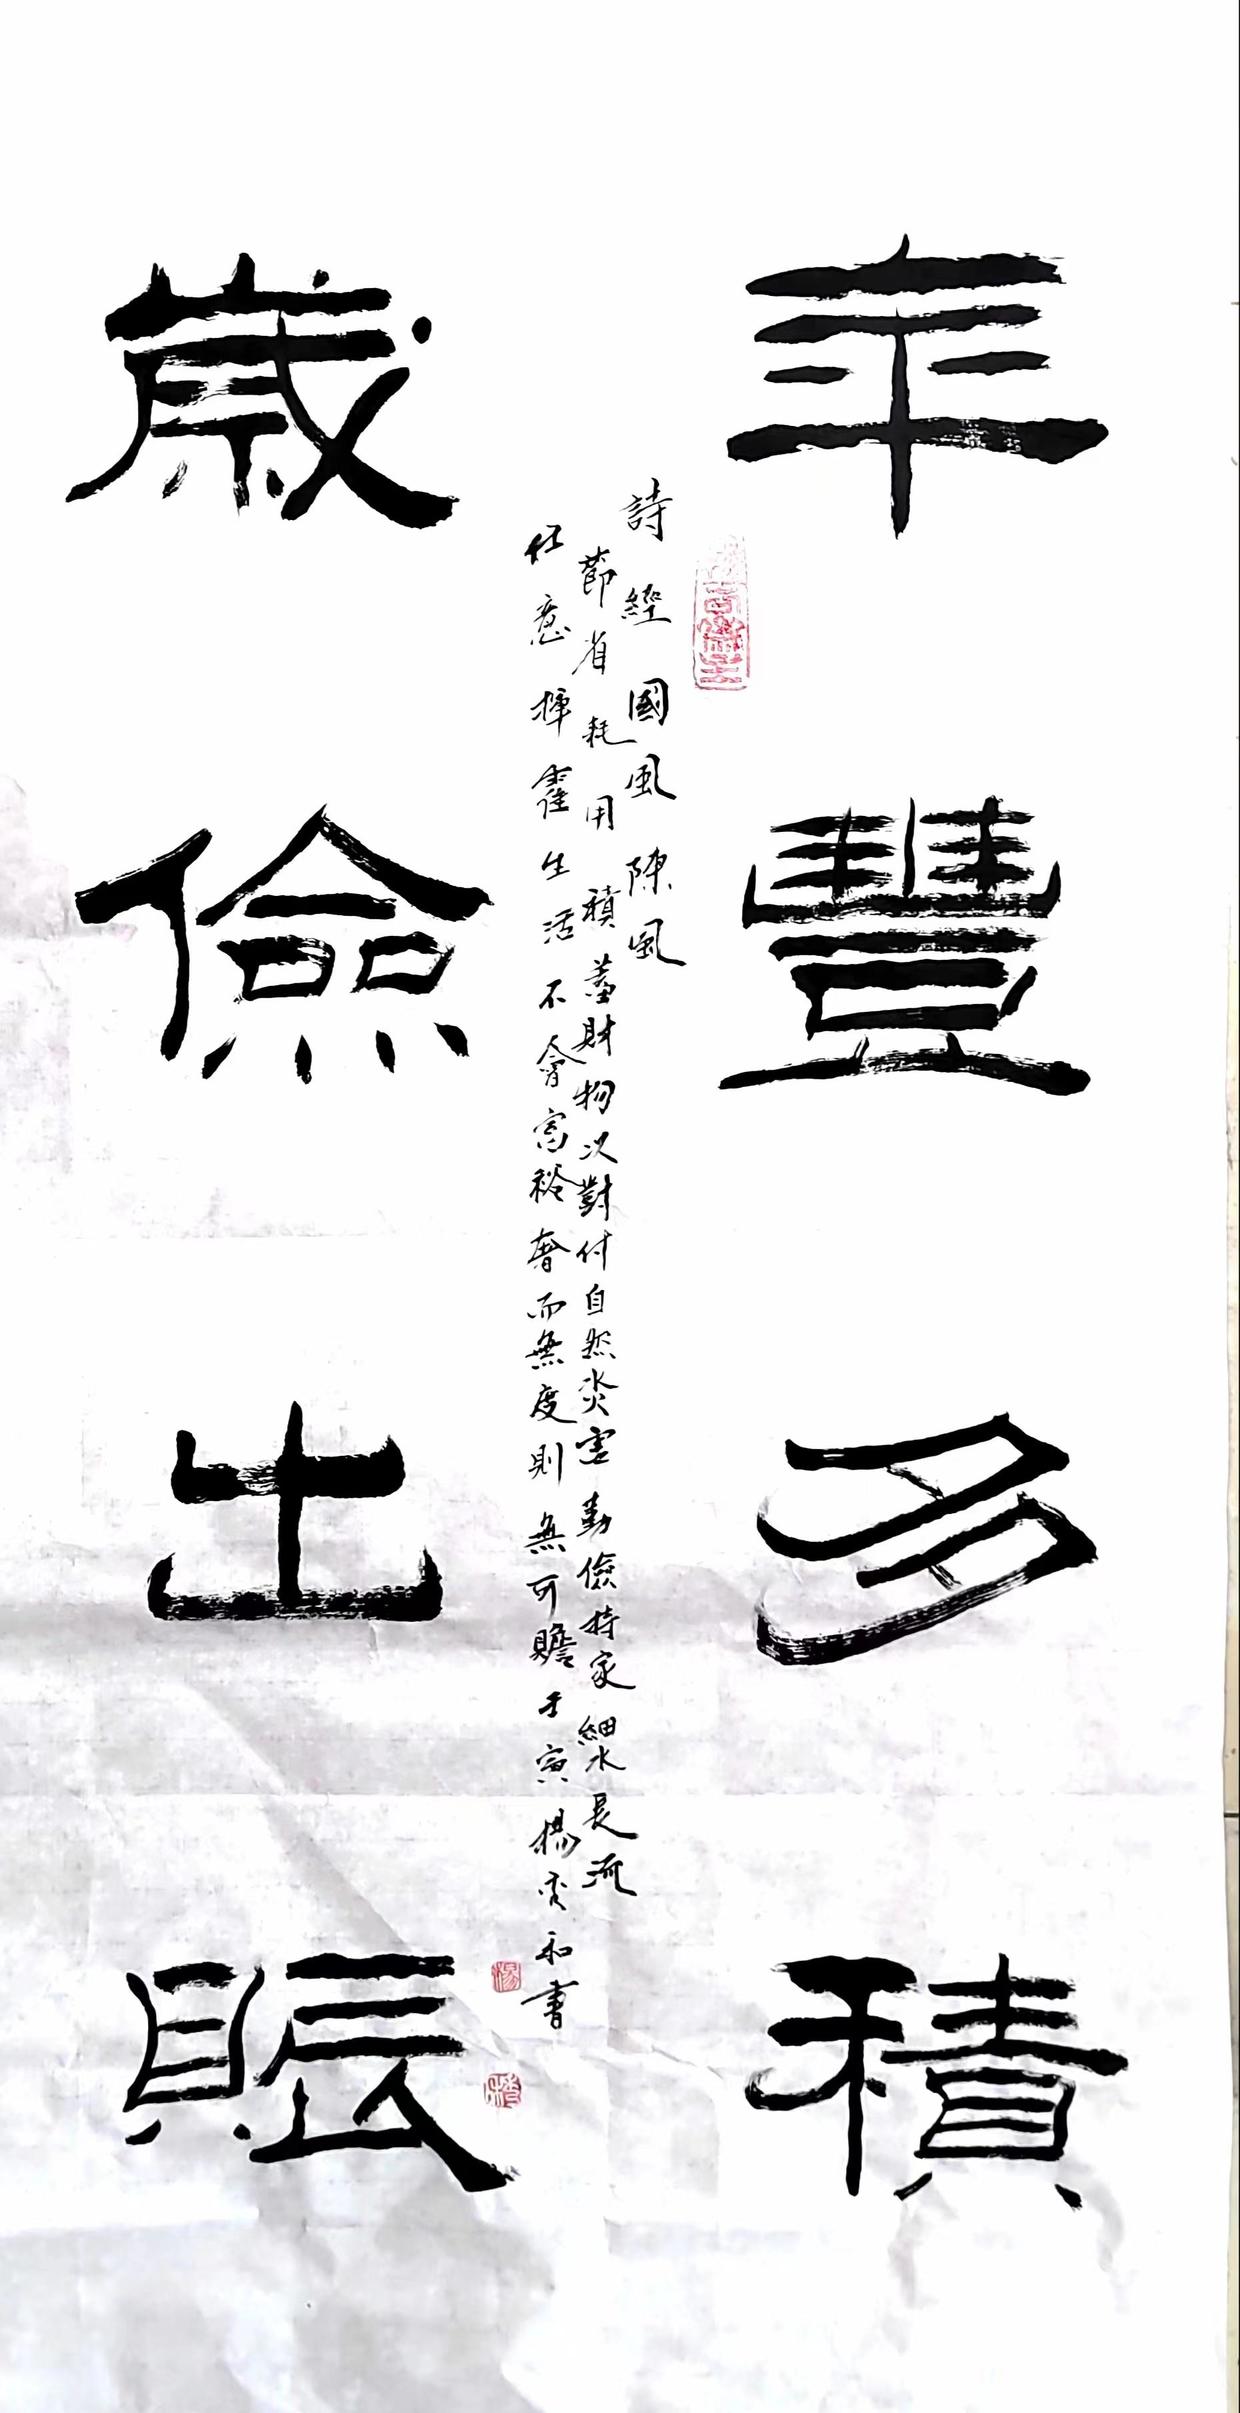 年豐多積
歲儉出賑
詩經國風陳風
節省耗用積蓄財物以對付自然災害勤儉持家細水長流
任意揮霍生活不會富裕奢而無度則無可贍壬寅楊秀和書
楊